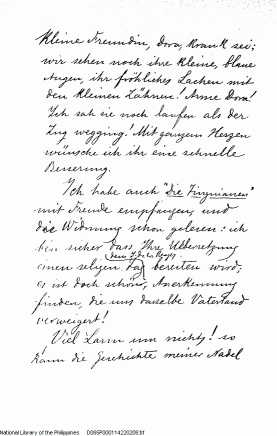 Kleine Freundin, Dora, krank sei;
wir sehen noch ihre kleine, blaue
Augen, ihr fröhliches Lachen mit
den kleinen Zähnen! Arme Dora!
Ich sah sie noch laufen als der
Zug wegging! Mit ganzem Herzen
wünsche ich ihr eine schnelle
Besserung.
Ich habe auch "Die Virginianer"
mit Freude empfangen, und
die Widmung schon gelesen: ich
bin sicher dass Ihre Übersetzung
einen seligen Tag bereiten wird;
es ist doch schön, Anerkennung
finden, die uns dasselbe Vaterland
verweigert!
Viel Lärm um nichts! so
kann die Geschichte meiner Nadel
National Library of the Philippines